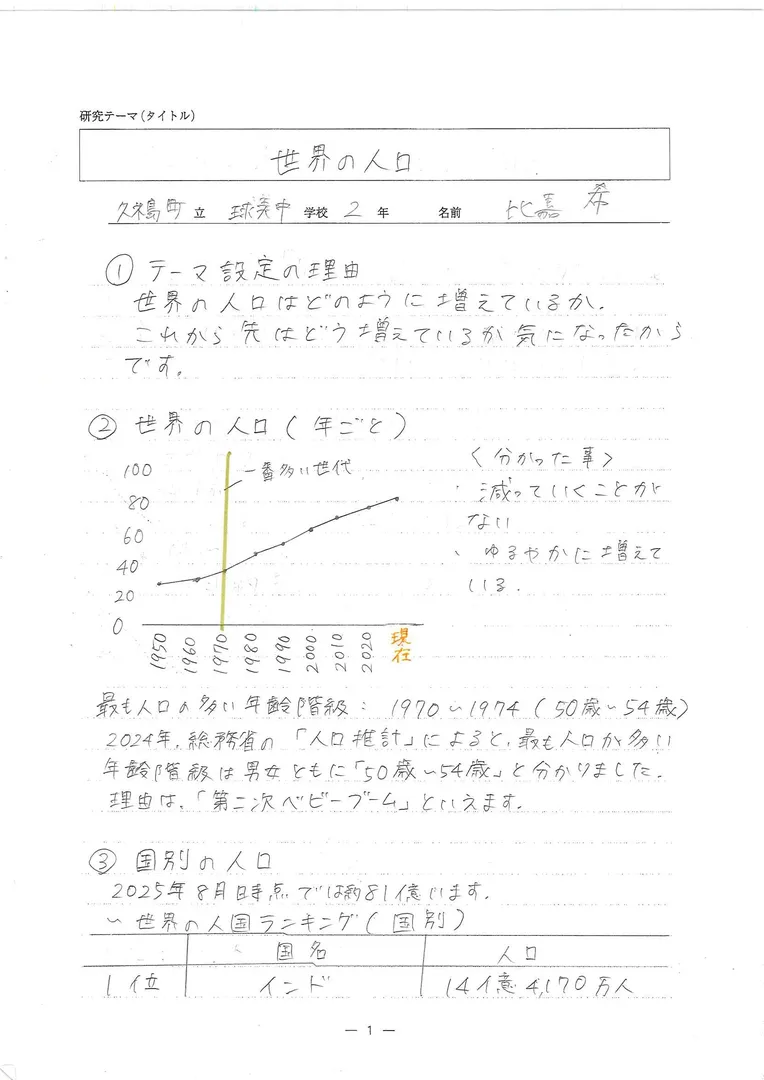 研究テーマ(タイトル)
世界の人口
久米島町 立 球美中 学校 2 年 名前 比嘉 希
① テーマ設定の理由
世界の人口はどのように増えているか、
これから先はどう増えているか気になったから
です。
② 世界の人口(年ごと)
100
80
60
40
20
0
一番多い世代
1950 1960 1970 1980 1990 2000 2010 2020 現在
〈分かった事〉
・減っていくことが
ない
・ゆるやかに増えて
いる.
最も人口の多い年齢階級: 1970〜1974(50歳〜54歳)
2024年、総務省の「人口推計」によると、最も人口が多い
年齢階級は男女ともに「50歳〜54歳」と分かりました.
理由は、「第二次ベビーブーム」といえます.
③ 国別の人口
2025年8月日時点では約81億います.
〜世界の人国ランキング(国別)
国名 人口
1位 インド 14億4,170万人
— 1 —